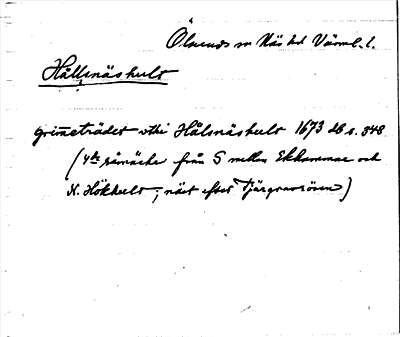 Ölseruds sn Näs hd Värml. l.
Hållsnäshult
grinneträdet vthi Hålsnäshult 1673 db s. 848
(4de råmärke från S mellan Ekhammar och
N. Hökhult; näst efter Tjärgravrösen)